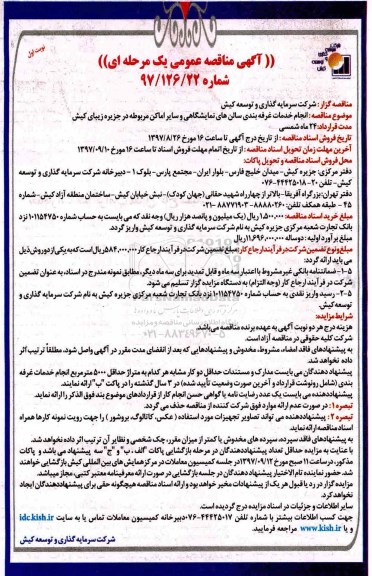 نوبت اول
(( آگهی مناقصه عمومی یک مرحله ای))
شماره ۹۷/۱۲۶/۲۲
مناقصه گزار : شرکت سرمایه گذاری و توسعه کیش
موضوع مناقصه : انجام خدمات غرفه بندی سالن های نمایشگاهی و سایر اماکن مربوطه در جزیره زیبای کیش
مدت قرارداد: ۲۴ ماه شمسی
تاریخ فروش اسناد مناقصه : از تاریخ درج آگهی تا ساعت ۱۶ مورخ ۱۳۹۷/۸/۲۶
آخرین مهلت زمان تحویل اسناد مناقصه : از تاریخ اتمام مهلت فروش اسناد تا ساعت ۱۶ مورخ ۱۳۹۷/۰۹/۱۰
محل فروش اسناد مناقصه و تحویل پاکات:
دفتر مرکزی: جزیره کیش - میدان خلیج فارس - بلوار ایران - مجتمع پارس - بلوک ۱ - دبیرخانه شرکت سرمایه گذاری و توسعه
کیش - تلفن ۲۰-۴۴۴۲۵۰۱۸-۰۷۶
دفتر تهران: بزرگراه آفریقا - بالاتر از چهارراه شهید حقانی (جهان کودک) - نبش خیابان کیش - ساختمان منطقه آزاد کیش - شماره
۴۵ - طبقه همکف تلفن: ۸۸۸۸۰۲۶۰ - ۸۸۷۷۱۹۰۳-۰۲۱
مبلغ خرید اسناد مناقصه: ۱،۵۰۰،۰۰۰ ریال (یک میلیون و پانصد هزار ریال) وجه نقد که می بایست به حساب شماره ۱۰۱۱۵۴۷۵۰ نزد
بانک تجارت شعبه مرکزی جزیره کیش به نام شرکت سرمایه گذاری و توسعه کیش واریز گردد.
مبلغ برآورد اولیه : دوساله ۱۱،۶۹۶،۰۰۰،۰۰۰ ریال
مبلغ و نوع تضمین شرکت در فرآیند ارجاع کار : مبلغ تضمین شرکت در فرآیند ارجاع کار ۵۸۴،۰۰۰،۰۰۰ ریال است که به یکی از دو روش ذیل
می باید ارائه گردد:
۱-۵- ضمانتنامه بانکی غیر مشروط با اعتبار سه ماه و قابل تمدید برای سه ماه دیگر، مطابق نمونه مندرج در اسناد، به عنوان تضمین
شرکت در فرآیند ارجاع کار (وجه التزام) به دستگاه مزایده گزار تسلیم می شود.
۲-۵ - رسید واریز نقدی به حساب شماره ۱۰۱۱۵۴۷۵۰ نزد بانک تجارت شعبه مرکزی جزیره کیش به نام شرکت سرمایه گذاری و
توسعه کیش.
شرایط مزایده:
هزینه درج هر دو نوبت آگهی به عهده برنده مناقصه می باشد.
شرکت کلیه حقوقی در مناقصه آزاد است.
به پیشنهادهای فاقد امضاء، مشروط، مخدوش و پیشنهادهایی که بعد از انقضای مدت مقرر در آگهی واصل شود، مطلقاً ترتیب اثر
داده نخواهد شد.
پیشنهاد دهندگان می بایست مدارک و مستندات حداقل دو کار مشابه هر کدام به متراژ حداقل ۵۰۰۰ مترمربع انجام خدمات غرفه
بندی (شامل رونوشت قرارداد و آخرین صورت وضعیت تأیید شده) در ۳ سال گذشته را در پاکت "ب" ارائه نمایند.
پیشنهاددهنده می بایست یک عدد رضایت نامه یا گواهی حسن انجام کار از قراردادهای موضوع بند فوق الذکر را ارائه نماید.
تبصره ۱ : در صورت عدم ارائه موارد فوق شرکت کننده از مناقصه حذف می گردد.
تبصره ۲ : پیشنهاددهنده می تواند تصاویر تجهیزات مورد استفاده ( عکس، کاتالوگ، بروشور ) را جهت رویت نمونه کارها همراه
اسناد مناقصه ارائه نماید.
به پیشنهادهای فاقد سپرده، سپرده های مخدوش یا کمتر از میزان مقرر، چک شخصی و نظایر آن ترتیب اثر داده نخواهد شد.
با عنایت به مزایده حداقل تعداد پیشنهاددهندگان در مرحله بازگشایی پاکات "الف ، ب" و "ج" سه پیشنهاد می باشد و پاکات
مذکور، درساعت ۱۱ صبح مورخ ۱۳۹۷/۰۹/۱۲ در جلسه کمیسیون معاملات در مرکز همایش های بین المللی کیش بازگشایی خواهند
شد. حضور نماینده تام الاختیار پیشنهاد دهندگان در جلسه بازگشایی در صورت ارائه معرفینامه معتبر کتبی، مجاز میباشد.
مزایده گزار در رد یا قبول هر یک از پیشنهادات مخیر خواهد بود و ارائه اسناد مناقصه هیچگونه حقی برای پیشنهاددهندگان ایجاد
نخواهد کرد.
سایر اطلاعات و جزئیات در اسناد مزایده درج گردیده است.
جهت کسب اطلاعات بیشتر با شماره تلفن ۴۴۴۲۵۰۱۷-۰۷۶ دبیرخانه کمیسیون معاملات تماس یا به سایت idc.kish.ir
و یا www.kish.ir مراجعه فرمایید.
شرکت سرمایه گذاری و توسعه کیش